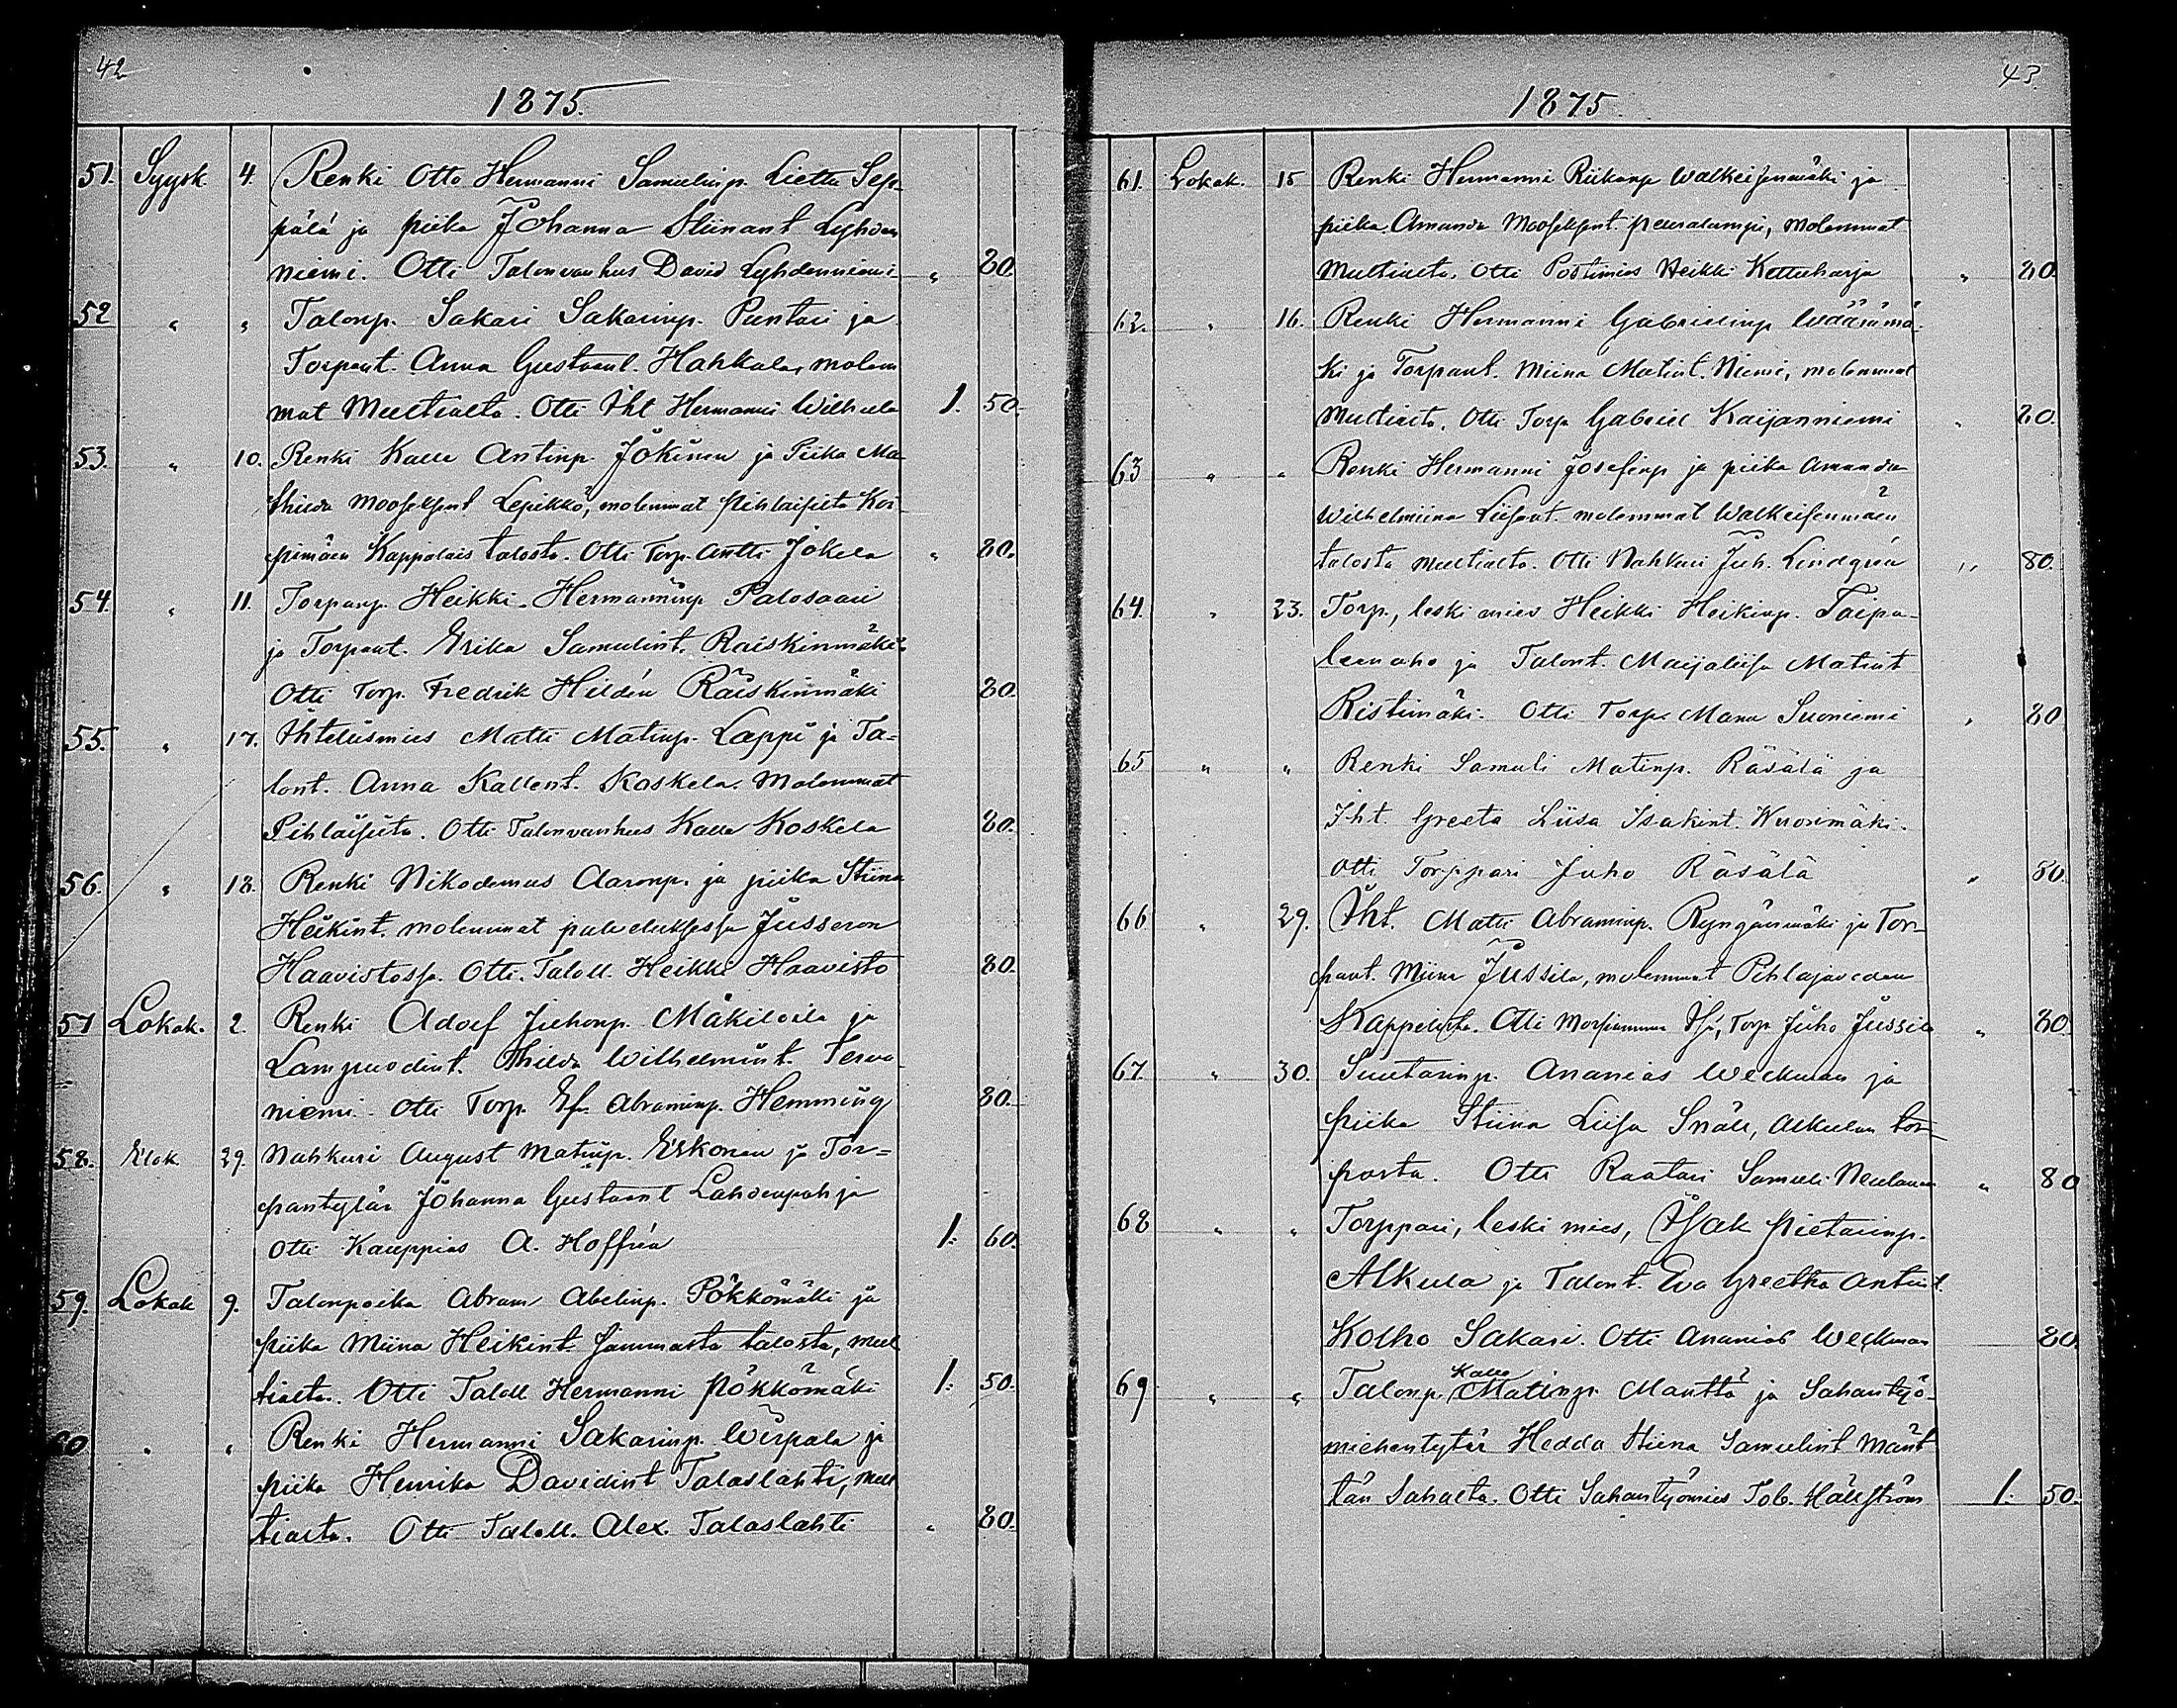 42
1875.
51. Syysk. 4. Renki Otto Hermanni Samulinp. Lietta Sep-
pälä ja piika Johanna Stiinant Lyhden
niemi. Otti Talonvanhus David Lyhdenniemi „ 80.
52 „ „ Talonp. Sakari Sakarinp. Puntari ja
Torpant. Anna Gustavnt. Hahkala, molem
mat Multialta. Otti Iht Hermanni Wilhula 1. 50.
53. „ 10. Renki Kalle Antinp. Jokinen ja Piika Ma-
thilda Mooseksent Lepikkö, molemmat Pihlaisista Kor-
pimäen Kappalais talosta. Otti Torp. Antti Jokela „ 80.
54. „ 11. Torpanp. Heikki Hermanninp Palosaari
ja Torpant. Erika Samulint. Raiskinmäki.
Otti Torp. Fredrik Hildén Raiskinmäki 80.
55. „ 17. Ihtelismies Matti Matinp. Lappi ja Ta=
lont. Anna Kallent. Koskela. Molemmat
Pihlaisista. Otti Talonvanhus Kalle Koskela 80.
56. „ 18. Renki Nikodemus Aaronp. ja piika Stiina
Heikint. molemmat palveluksessa Jusseron
Haavistossa. Otti. Taloll. Heikki Haavisto 80.
57 Lokak. 2. Renki Adolf Juhonp. Mäkiloila ja
Lampuodint. Thilda Wilhelmint. Terva
niemi. Otti Torp. Ef. Abraminp. Hemming 80.
58. Elok 29. Nahkuri August Matinp. Eskonen ja Tor=
pantytär Johanna Gustavnt Lahdenpohja
Otti Kauppias A. Hoffrén 1: 60.
59. Lokak 9. Talonpoika Abram Abelinp. Pökkömäki ja
piika Miina Heikint sammasta talosta, mul
tialta. Otti Taloll Hermanni Pökkömäki 1: 50.
60 „ „ Renki Hermanni Sakarinp. Wirpala ja
piika Henrika Davidint Talaslahti, mul
tialta. Otti Taloll. Alex. Talaslahti „ 80.
43.
1875.
61. Lokak. 15 Renki Hermanni Riikanp Walkeisenmäki ja
piika Amanda Mooseksent. peuralampi, molemmat
Multialta. Otti Postimies Heikki Kettuharja „ 80.
62. „ 16. Renki Hermanni Gabrielinp Wäärämä-
ki ja Torpant. Miina Matint. Niemi, molemmat
Multialta. Otti Torp Gabriel Kaijanniemi „ 80.
63 „ „ Renki Hermanni Josefinp ja piika Amanda
Wilhelmiina Liisant. molemmat Walkeisenmäen
talosta Multialta. Otti Nahkuri Juh. Lindgrén „ 80
64. „ 23. Torp., leski mies Heikki Heikinp. Taipa-
leenaho ja Talont. Maijaliisa Matint
Ristimäki. Otti Torp. Manu Suoniemi „ 80
65 „ „ Renki Samuli Matinp. Räsälä ja
Iht. Greeta Liisa Isakint. Wuorimäki.
Otti Torppari Juho Räsälä „ 80.
66 „ 29. Iht. Matti Abraminp. Ryngänmäki ja Tor-
pant. Miina Jussila, molemmat Pihlajaveden
Kappelista. Otti Morsiamen Isä, Torp. Juho Jussila „ 80.
67. „ 30. Suutarinp. Ananias Weckman ja
piika Stiina Liisa Snäll, Alkulan tor-
pasta. Otti Raatari Samuli Neulanen „ 80
68 „ „ Torppari, leski mies, Isak Pietarinp.
Alkula ja Talont. Eva Greetha Antint.
Kolho Sakari. Otti Ananias Weckman 80.
69 „ „ Talonp. Kalle Matinp. Mänttä ja Sahantyö-
miehentytär Hedda Stiina Samulint Mänt
tän Sahalta. Otti Sahantyömies Tob. Hällström 1: 50.